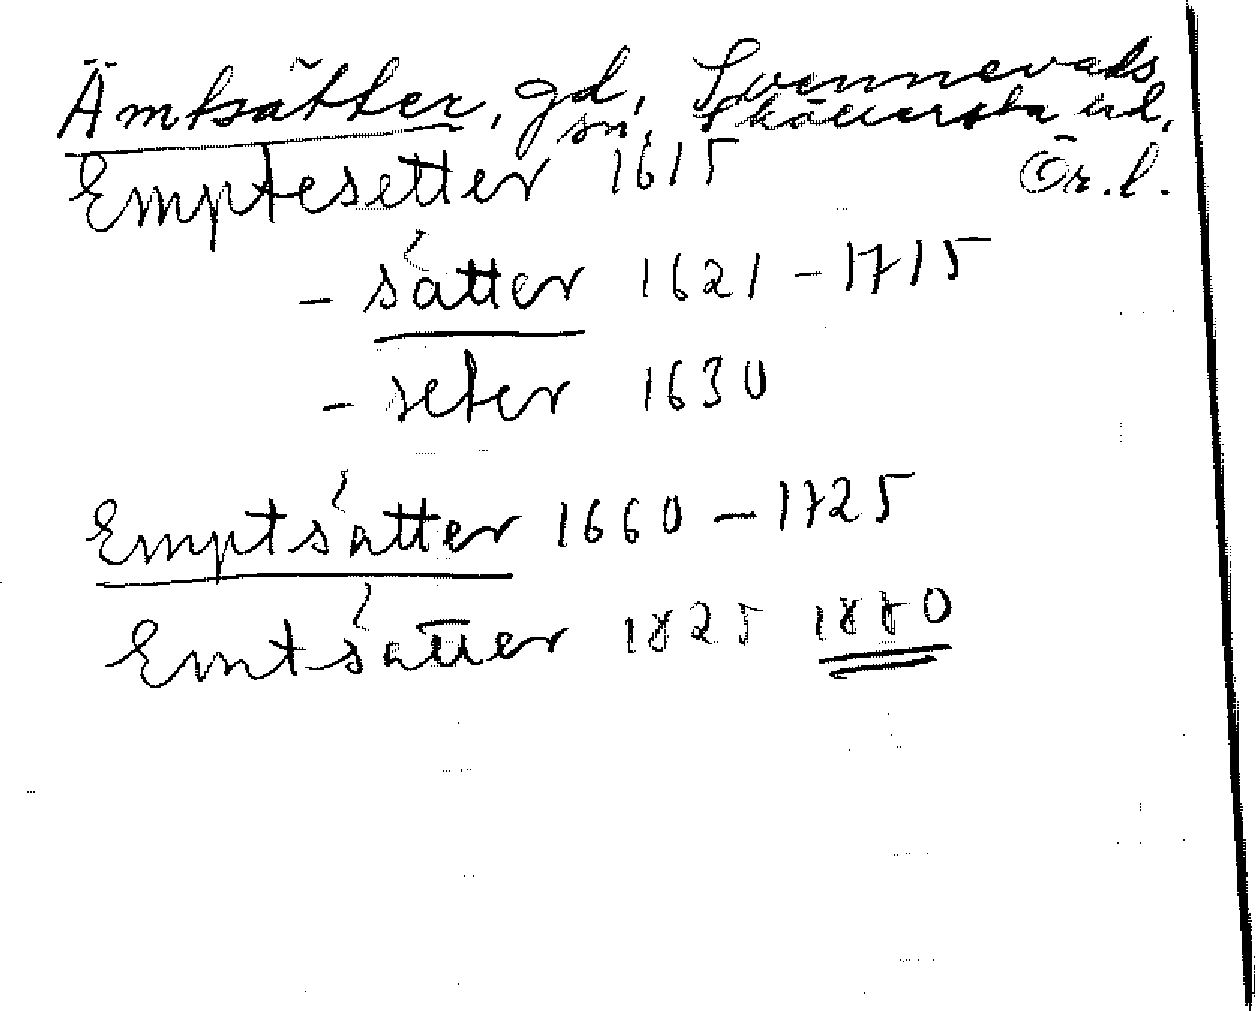 Ämtsätter, gd, Svennevads
sn, Sköllersta hd,
Emptesetter 1615 Ör. l.
- sätter 1621 - 1715
- seter 1630
Emptsätter 1660 - 1725
Emtsätter 1825 1880